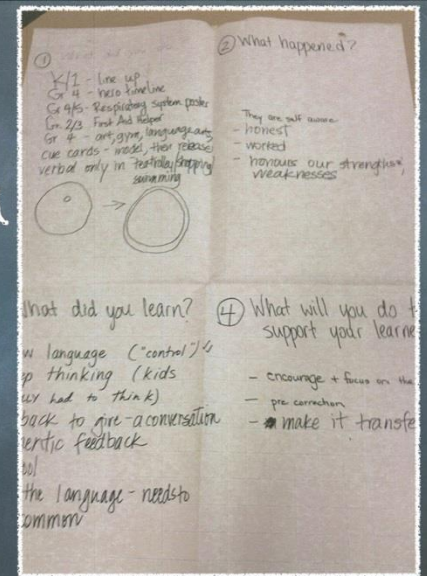 ① What did you do?
K/1 - line up
Gr 4 - hero timeline
Gr 4/5 - Respiratory system poster
Gr. 2/3 First Aid Helper
Gr 4 - art, gym, language arts,
cue cards - model, then release
verbal only in
swimming
② What happened?
They are self aware
- honest
- worked
- honours our strengths,
weaknesses
hat did you learn?
w language ("control")
p thinking (kids
had to think)
back to give - a conversation
entic feedback
ool
the language - needs to
ommon
④ What will you do t
support your learne
- encourage + focus on the
- pre correction
- make it transfe